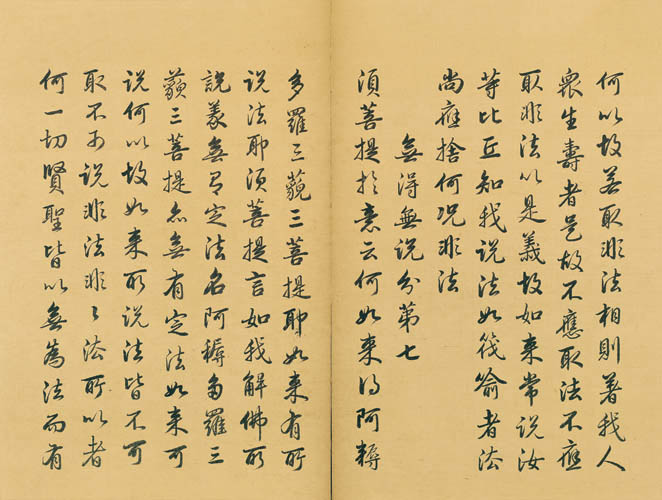 何以故若取非法相則著我人
衆生壽者是故不應取法不應
取非法以是義故如来常說汝
等比丘知我說法如筏喻者法
尚應捨何况非法
無得無說分第七
須菩提於意云何如来得阿耨
多羅三藐三菩提耶如来有所
說法耶須菩提言如我解佛所
說義無有定法名阿耨多羅三
藐三菩提亦無有定法如来可
說何以故如来所說法皆不可
取不可說非法非〻法所以者
何一切賢聖皆以無為法而有